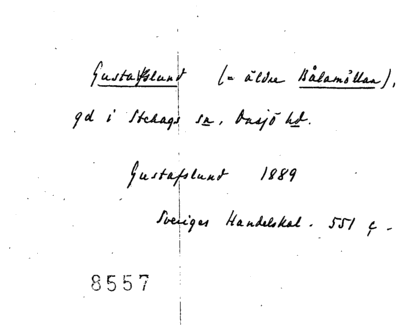 Gustafslund (= äldre Bålamöllan),
gd i Stehags sn, Onsjö hd.
Gustafslund 1889
Sveriges Handelskal. 551 ç.
8557